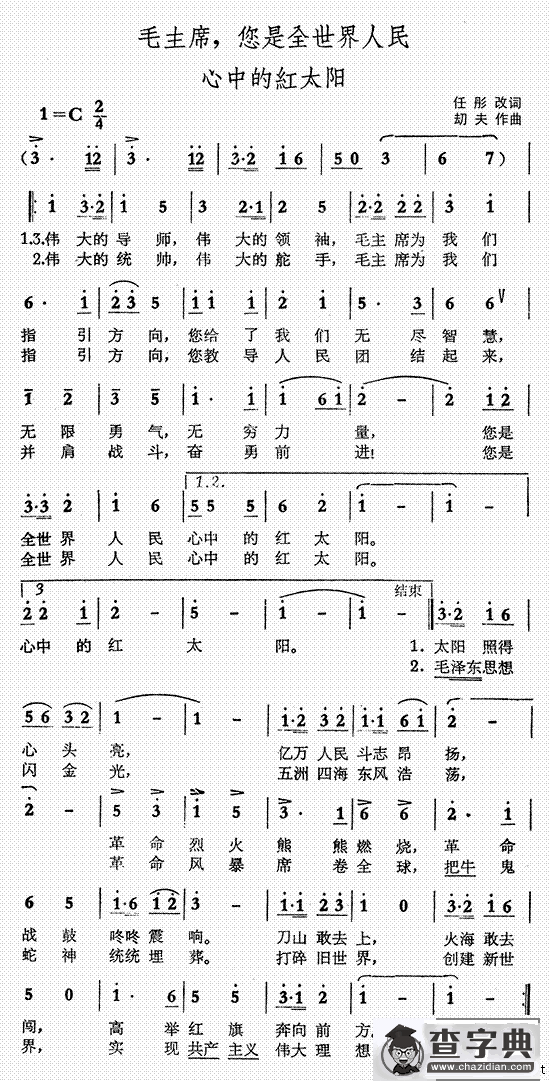 毛主席，您是全世界人民
心中的紅太阳
1=C 2/4
任彤 改词
劫夫 作曲
(3· 12 | 3· 12 | 3·2 16 | 50 3 | 6 7) |
1 3·2 | 1 5 | 3 2·1 | 2 5 | 2·2 22 | 3 1 |
1.3.伟 大的 导 师，伟 大的 领 袖，毛主 席为 我 们
2.伟 大的 统 帅，伟 大的 舵 手，毛主 席为 我 们
6· 1 | 23 5 | 11 1 | 2 1 | 5· 3 | 6 6V |
指 引 方 向，您给 了 我 们 无 尽 智 慧，
指 引 方 向，您教 导 人 民 团 结 起 来，
1 2 | 3 5 | 1· 1 | 1 61 | 2 - | 2 12 |
无 限 勇 气，无 穷 力 量， 您是
并 肩 战 斗，奋 勇 前 进！ 您是
1.2.
3·3 2 | 1 6 | 55 5 | 6 2 | 1 - | 1 - |
全世 界 人 民 心中 的 红 太 阳。
全世 界 人 民 心中 的 红 太 阳。
3 结束
22 1 | 2 - | 5 - | 1 - | 1 - | 3·2 16 |
心中 的 红 太 阳。 1．太阳 照得
2．毛泽东思想
56 32 | 1 - | 1 - | 1·2 32 | 1·1 61 | 2 - |
心 头 亮， 亿万 人民 斗志 昂 扬，
闪 金 光， 五洲 四海 东风 浩 荡，
2 - | 5 3 | 1 5 | 3· 1 | 6 5 | 2· 1 |
革 命 烈 火 熊 熊 燃 烧，革 命
革 命 风 暴 席 卷 全 球，把牛 鬼
6 5 | 1·6 12 | 3 - | 1·1 23 | 1 0 | 3·1 23 |
战 鼓 咚咚 震 响。 刀山 敢去 上， 火海 敢去
蛇 神 统统 埋 葬。 打碎 旧世 界， 创建 新世
5 0 | 1· 6 | 5 5 | 3·1 2 |
闯， 高 举 红 旗 奔向 前 方，
界， 实 现 共产 主义 伟大 理 想
查字典
www.chazidian.com
t